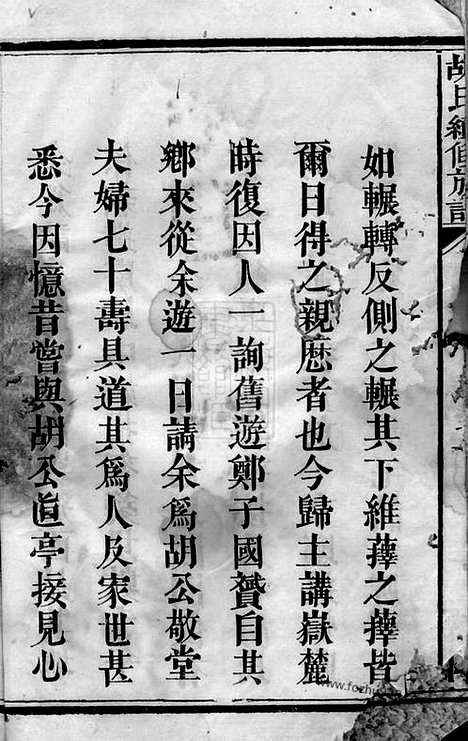 胡氏續修族譜
如輾轉反側之輾其下維蘀之蘀皆
爾日得之親麽者也今歸主講嶽麓
時復因人一詢舊遊鄭子國贇自其
鄉來從余遊一日請余爲胡公敬堂
夫婦七十壽具道其爲人及家世甚
悉今因憶昔嘗與胡公直亭接見心